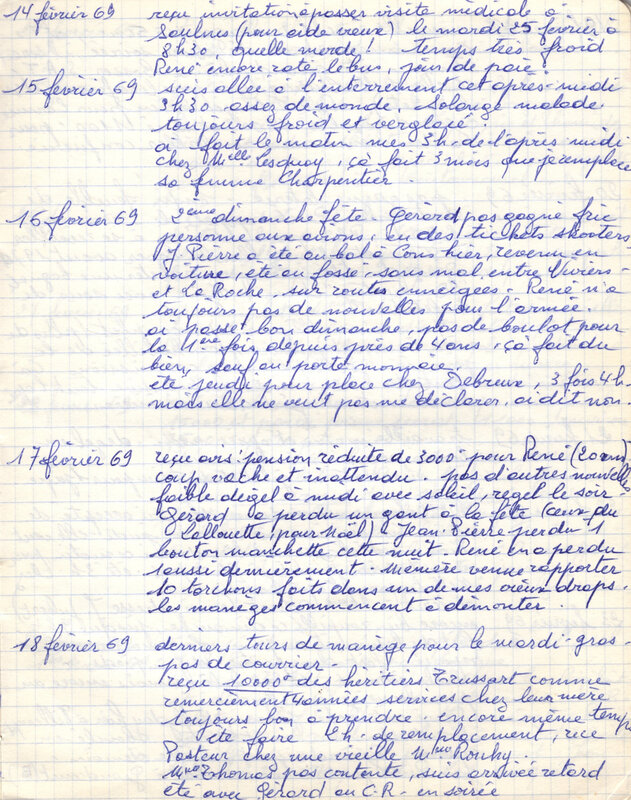 14 février 69 reçu invitation à passer visite médicale à
Saulnes (pour aide vieux) le mardi 25 février à
8h30, quelle merde! temps très froid
René encore raté le bus, jour de paie!
15 février 69 suis allée à l'enterrement cet après-midi
3h30 assez de monde. Solange malade
toujours froid et verglacé.
ai fait le matin mes 3h. de l'après midi
chez Melle Lesquoy, çà fait 3 mois que je remplace
sa femme Charpentier.
16 février 69 2ème dimanche fête. Gérard pas gagné fric
personne aux avions, eu des tickets skooters
J. Pierre a été au bal à Cons hier, revenu en
voiture, été au fossé, sans mal, entre Viviers
et La Roche, sur routes enneigées. René n'a
toujours pas de nouvelles pour l'armée.
ai passé bon dimanche, pas de boulot pour
la 1ère fois depuis près de 4 ans, çà fait du
bien, sauf au porte monnaie.
été jeudi pour place chez Debreux, 3 fois 4h.
mais elle ne veut pas me déclarer, ai dit non.
17 février 69 reçu avis: pension réduite de 3000 pour René (20 ans)
coup vache et inattendu. pas d'autres nouvelles
faible dégel à midi avec soleil, regel le soir
Gérard a perdu un gant à la fête (ceux du
Lallouette, pour Noël) Jean-Pierre perdu 1
bouton manchette cette nuit. René en a perdu
1 aussi dernièrement. Mémère venue rapporter
10 torchons faits dans un de mes vieux draps.
les manèges commencent à démonter.
18 février 69 derniers tours de manège pour le mardi-gras
pas de courrier.
reçu 10000 des héritiers Trussart comme
remerciement 4 années services chez leur mère
toujours bon à prendre. encore même temps
été faire 2h. de remplacement, rue
Pasteur chez une vieille Mme Rouhy.
Mme Thomas pas contente, suis arrivée retard
été avec Gérard au C.R. en soirée